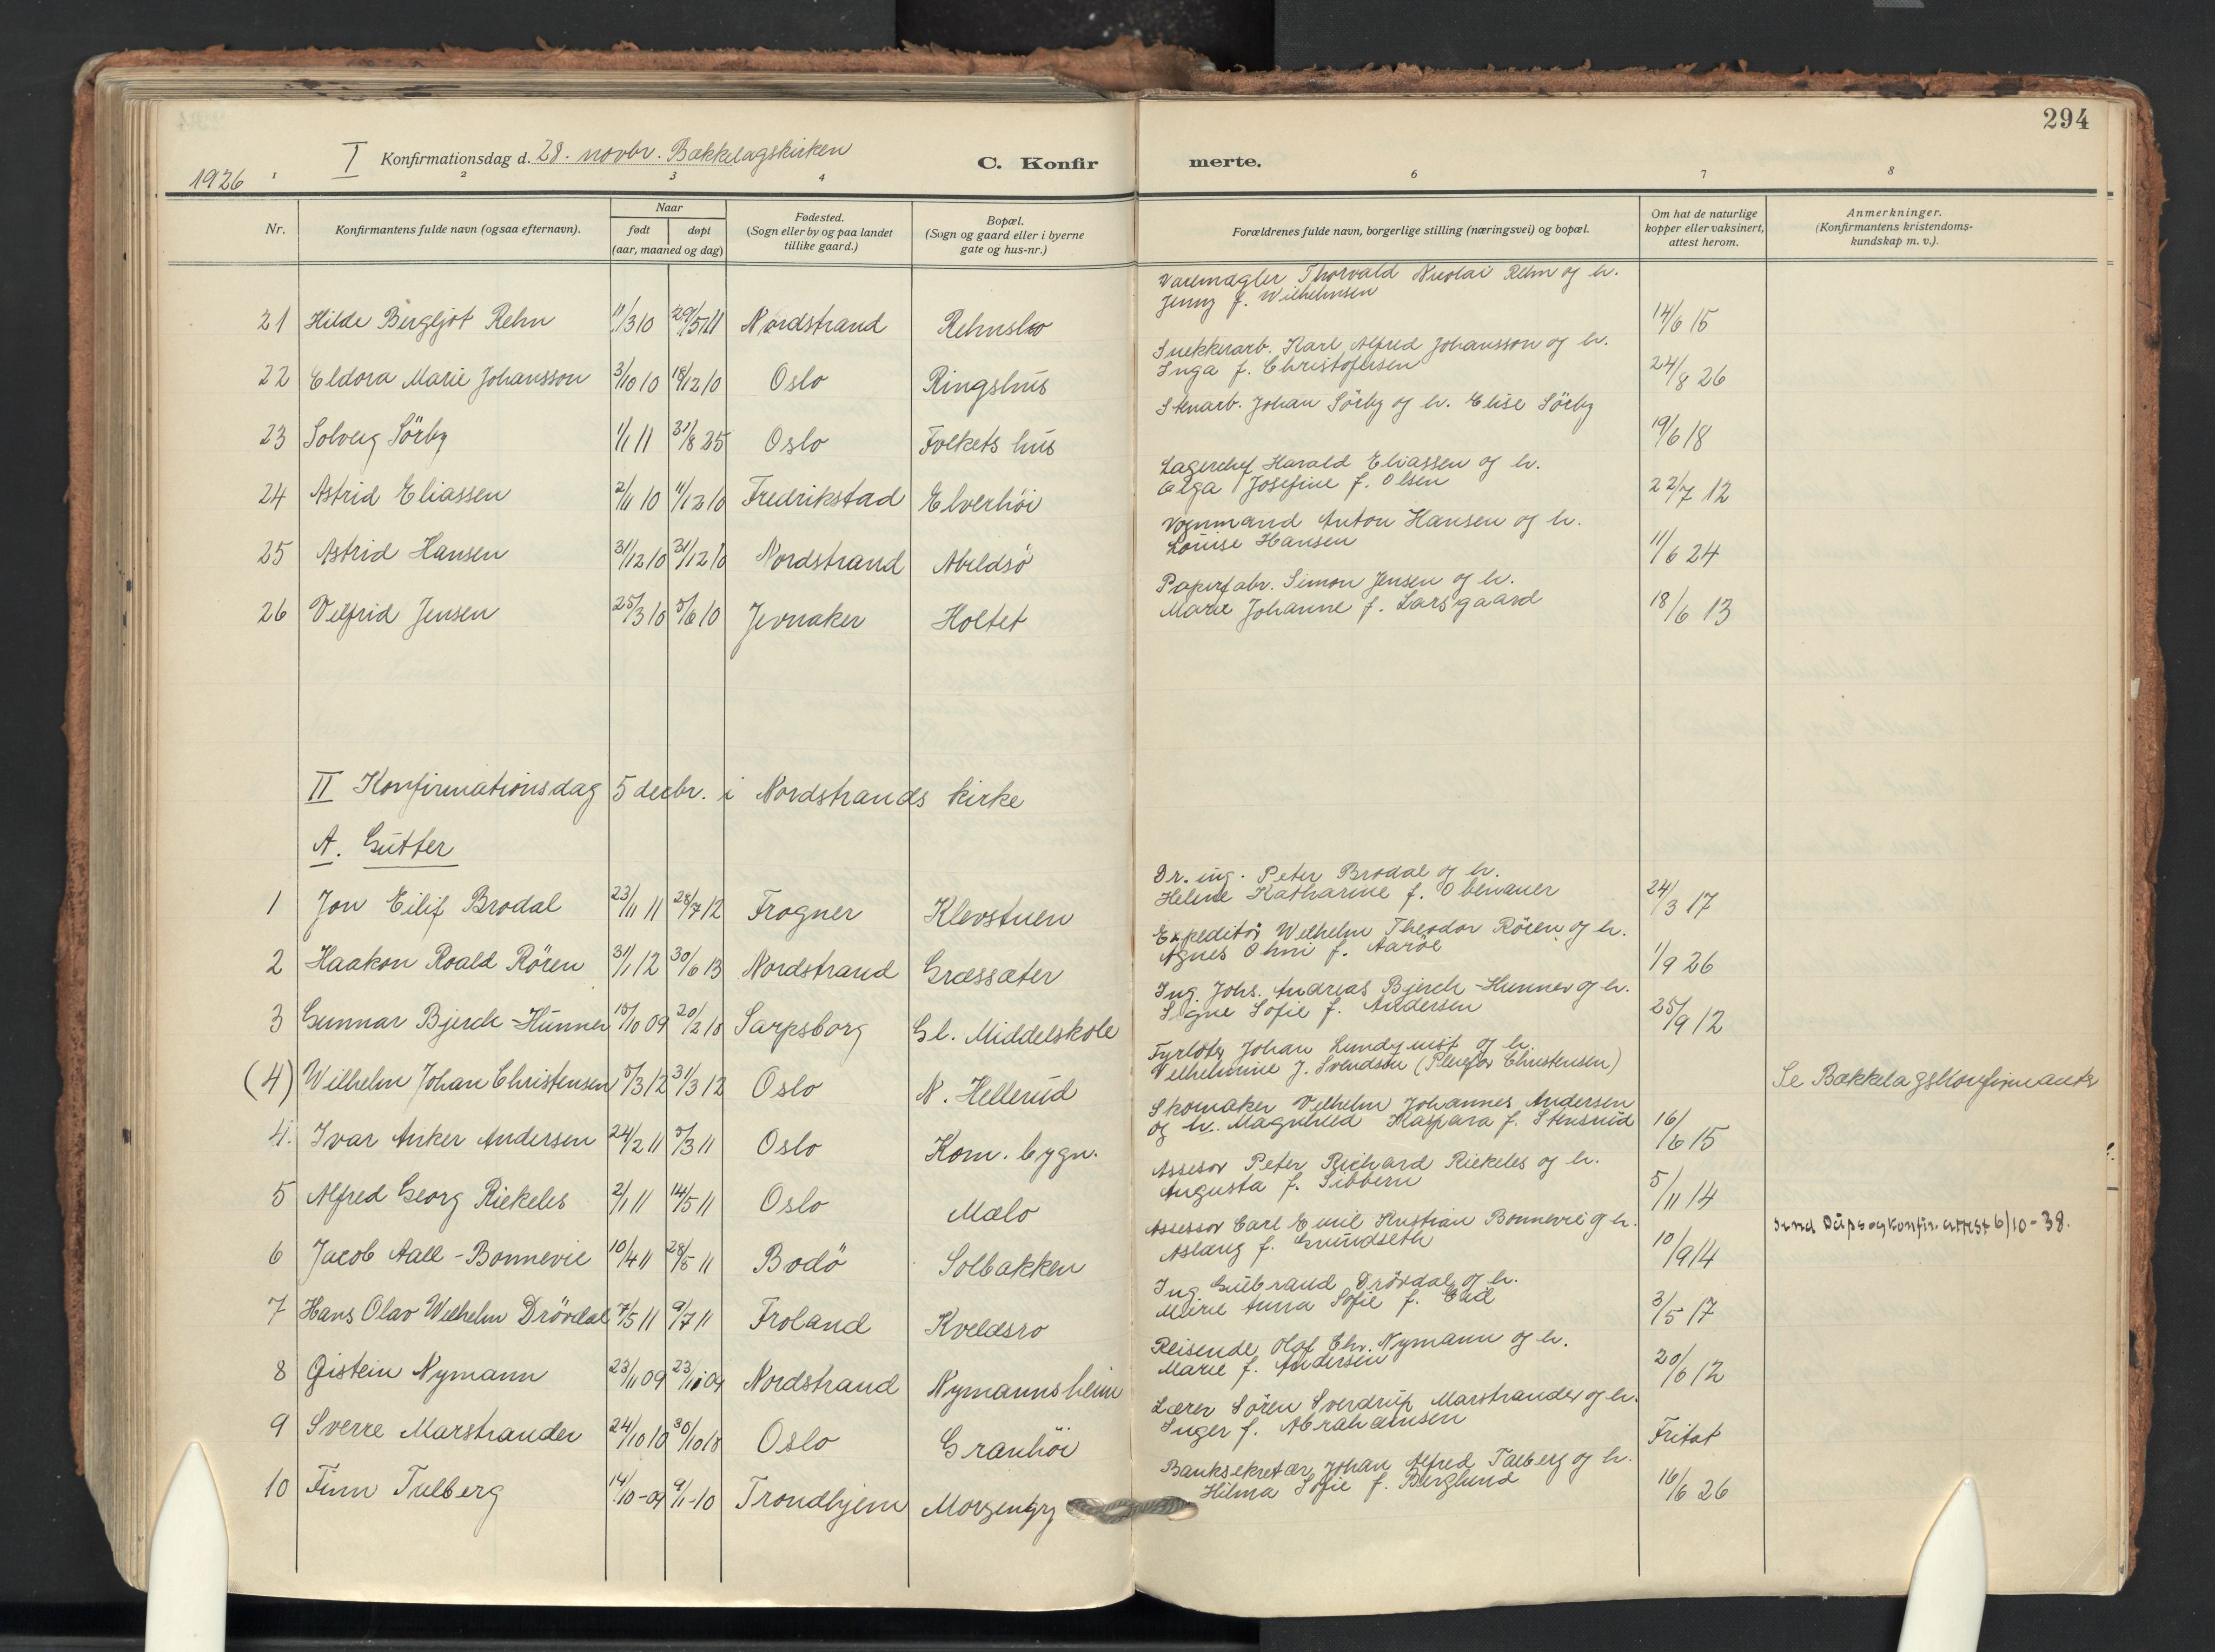 294
I Konfirmationsdag d. 28. novbr. Bækkelagskirken C. Konfirmerte.
1926 1 2 3 4 6 7 8
Nr. Konfirmantens fulde navn (ogsaa efternavn). Naar født døpt (aar, maaned og dag) Fødested. (Sogn eller by og paa landet tillike gaard.) Bopæl. (Sogn og gaard eller i byerne gate og hus-nr.) Forældrenes fulde navn, borgerlige stilling (næringsvei) og bopæl. Om hat de naturlige kopper eller vaksinert, attest herom. Anmerkninger. (Konfirmantens kristendomskundskap m. v.).
21 Hilde Bergljot Rehn 11/3 10 29/5 11 Nordstrand Rehnslo Varemægler Thorvald Nicolai Rehn og h. Jenny f. Wilhelmsen 14/6 15
22 Eldora Marie Johansson 3/10 10 18/12 10 Oslo Ringshus Snekkerarb. Karl Alfred Johansson og h. Inga f. Christofersen 24/8 26
23 Solveig Sörby 1/1 11 31/8 25 Oslo Folkets hus Stenarb. Johan Sörby og h. Elise Sörby 19/6 18
24 Astrid Eliassen 2/11 10 11/12 10 Fredrikstad Elverhöi Lagerchef Harald Eliassen og h. Olga Josefine f. Olsen 22/7 12
25 Astrid Hansen 31/12 10 31/12 10 Nordstrand Abildsö Vognmand Anton Hansen og h. Louise Hansen 11/6 24
26 Velfrid Jensen 25/3 10 5/6 10 Jevnaker Holtet Papirfabr. Simon Jensen og h. Marie Johanne f. Larsgaard 18/6 13
II Konfirmationsdag 5 decbr. i Nordstrands kirke
A. Gutter
1 Jon Eilif Brodal 23/11 11 28/7 12 Frogner Klevstuen Dr. ing. Peter Brodal og h. Helene Katharine f. Obenauer 24/3 17
2 Haakon Roald Rören 31/1 12 30/6 13 Nordstrand Græssæter Expeditör Wilhelm Theodor Rören og h. Agnes Omi f. Aaröe 1/9 26
3 Gunnar Bjerch-Hunner 15/10 09 20/2 10 Sarpsborg Gl. Middelskole Ing. Johs. Andreas Bjerch-Hunner og h. Signe Sofie f. Andersen 25/9 12
(4) Wilhelm Johan Christensen 5/3 12 31/3 12 Oslo N. Hellerud Fyrböter Johan Lundquist og h. Wilhelmine f. Svendsen (Pleiefor Christensen) Se Bækkelagskonfirmanter
4. Ivar Anker Andersen 24/2 11 5/3 11 Oslo Kom. bygn. Skomaker Vilhelm Johannes Andersen og h. Magnhild Kaspara f. Stensrud 16/6 15
5 Alfred Georg Riekeles 2/1 11 14/5 11 Oslo Malo Assesor Peter Richard Riekeles og h. Augusta f. Sibbern 5/11 14
6 Jacob Aall-Bonnevie 10/4 11 28/5 11 Bodö Solbakken Assessor Carl Emil Kristian Bonnevie og h. Aslaug f. Grundseth 10/9 14 Send Dåps og konfir. attest 6/10-38.
7 Hans Olav Wilhelm Drövdal 7/5 11 9/7 11 Froland Kveldsro Ing. Gulbrand Drövdal og h. Marie Anna Sofie f. Eid 3/5 17
8 Øistein Nymann 23/11 09 23/11 09 Nordstrand Nymannsheim Reisende Olaf Chr. Nymann og h. Marie f. Andersen 20/6 12
9 Sverre Marstrander 24/10 10 30/10 10 Oslo Granhöi Lærer Sören Sverdrup Marstrander og h. Inger f. Abrahamsen Fritat
10 Finn Talberg 14/10-09 9/1-10 Trondhjem Morgengry Banksekretær Johan Alfred Talberg og h. Hilma Sofie f. Berglund 16/6 26